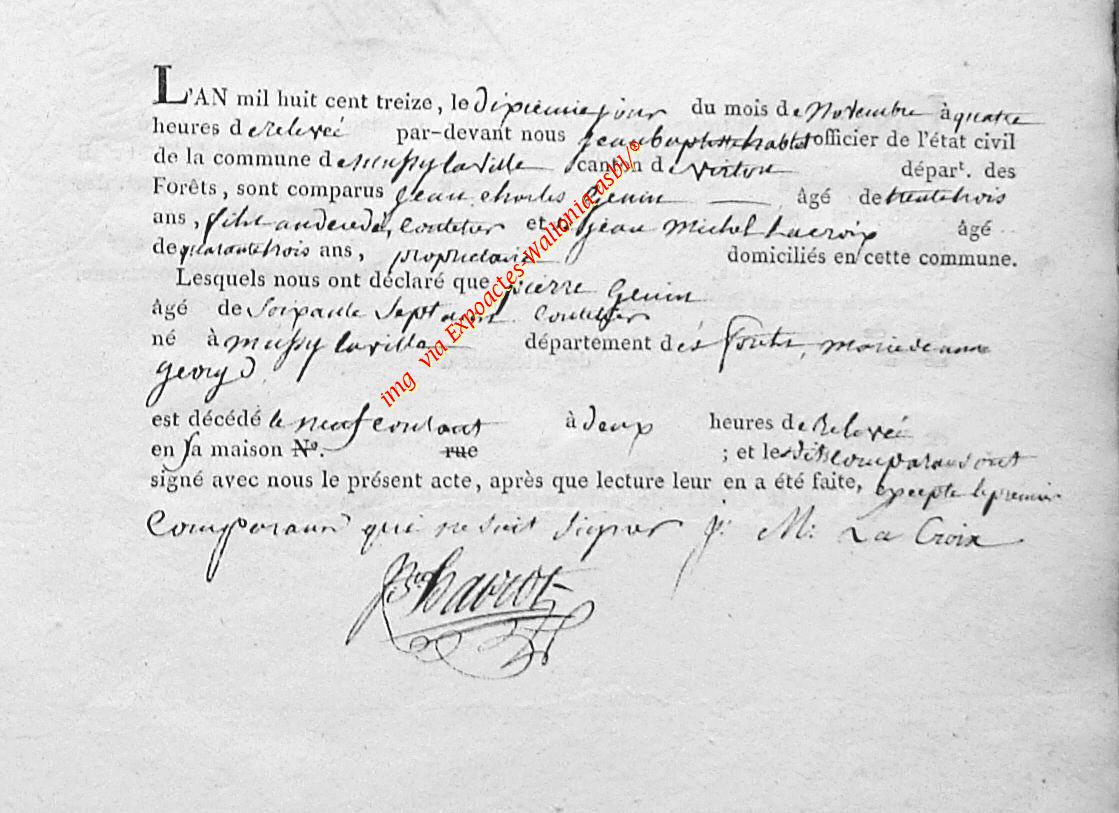 L'AN mil huit cent treize, le dixieme jour du mois de Novembre à quatre
heures de Relevée par-devant nous Jean baptiste officier de l'état civil
de la commune de mussy la ville canton de Virton dépar<sup>t</sup>. des
Forêts, sont comparus Jean Charles Genin âgé de trente trois
ans, fils au decedé, Coutelier et Jean Michel Lacroix âgé
de quarante trois ans, propriétaire domiciliés en cette commune.
Lesquels nous ont déclaré que pierre Genin
âgé de Soixante Sept ans Coutelier
né à mussy la ville département des forêts,
Georg
est décédé le neuf courant à deux heures de Relevée
en sa maison N°. rue ; et lesdits Comparans ont
signé avec nous le présent acte, après que lecture leur en a été faite, excepte le premier
Comparant que ne sait signer J. M: La Croix
img via Expoactes-Wallonia-asbl/©